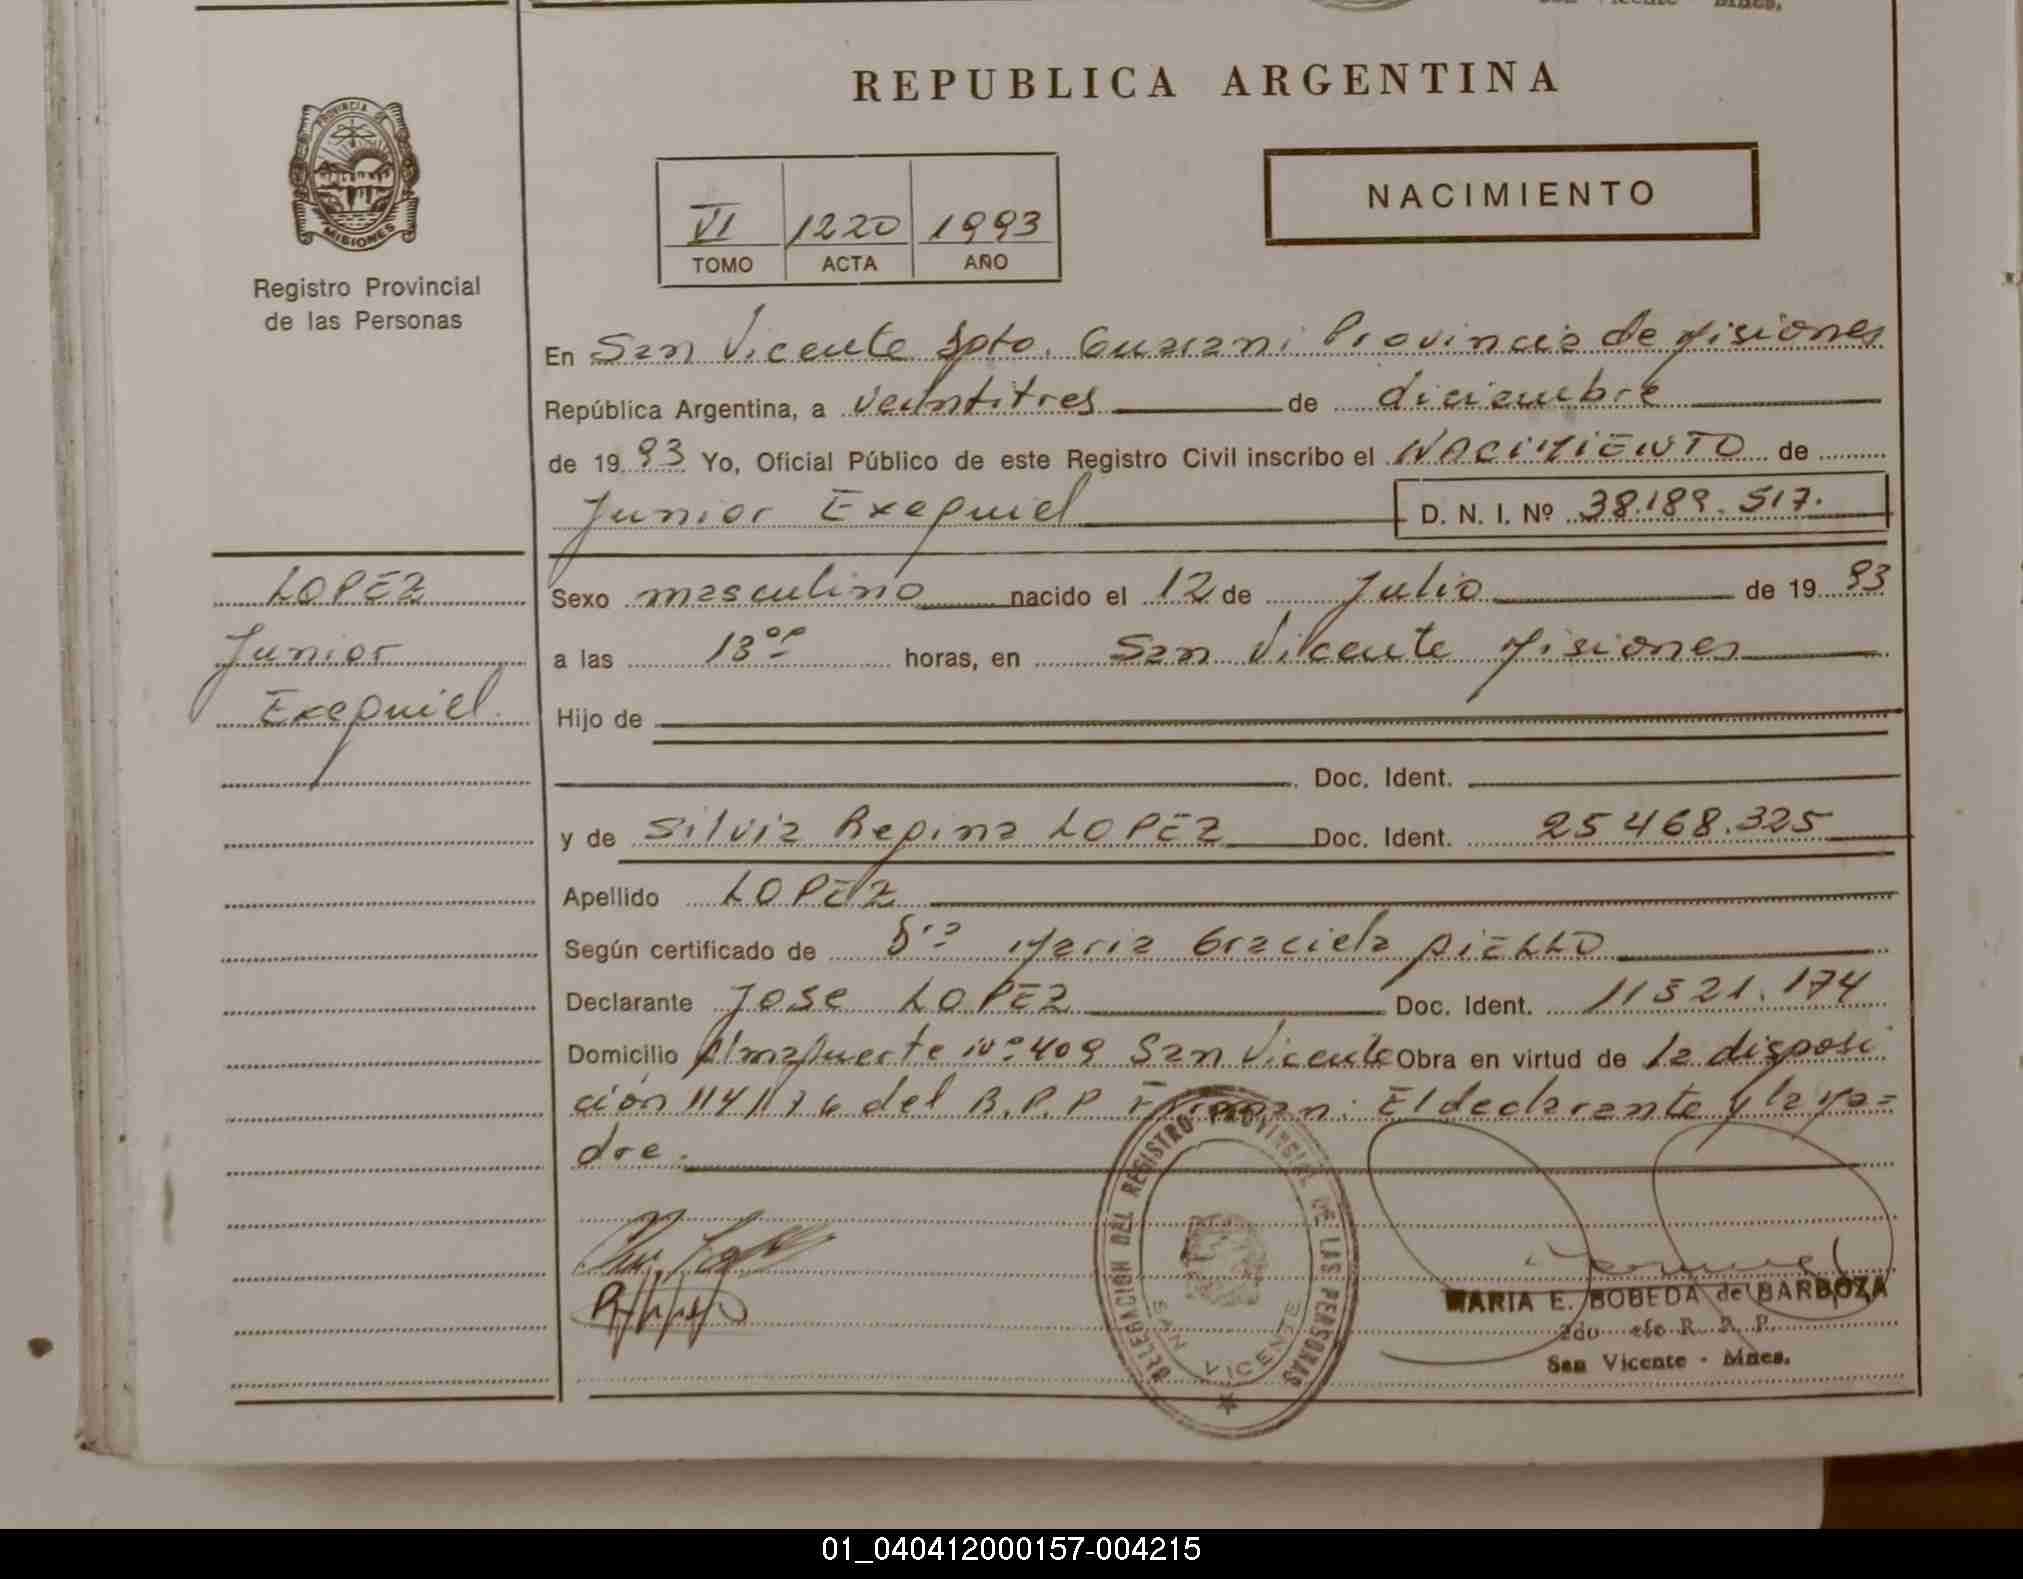 REPUBLICA ARGENTINA
PROVINCIA DE
MISIONES
Registro Provincial
de las Personas
NACIMIENTO
VI 1220 1993
TOMO ACTA AÑO
En San Vicente Dpto. Guarani Provincia de Misiones
República Argentina, a veintitres de diciembre
de 1993 Yo, Oficial Público de este Registro Civil inscribo el NACIMIENTO de
Junior Exequiel D. N. I. Nº 38.189.517.
LOPEZ
Junior
Exequiel
Sexo masculino nacido el 12 de Julio de 1993
a las 13 horas, en San Vicente Misiones
Hijo de
Doc. Ident.
y de Silvia Regina LOPEZ Doc. Ident. 25468.325
Apellido LOPEZ
Según certificado de Dra Maria Graciela AIELLO
Declarante Jose LOPEZ Doc. Ident. 11521.174
Domicilio Almafuerte Nº 409 San Vicente Obra en virtud de la disposi
ción 114/76 del R.P.P Firman: El declarante y la Ma=
dre.
DELEGACION DEL REGISTRO PROVINCIAL DE LAS PERSONAS
SAN VICENTE
MARIA E. BOBEDA de BARBOZA
2do Jefe R. P. P.
San Vicente - Mnes.
01_040412000157-004215